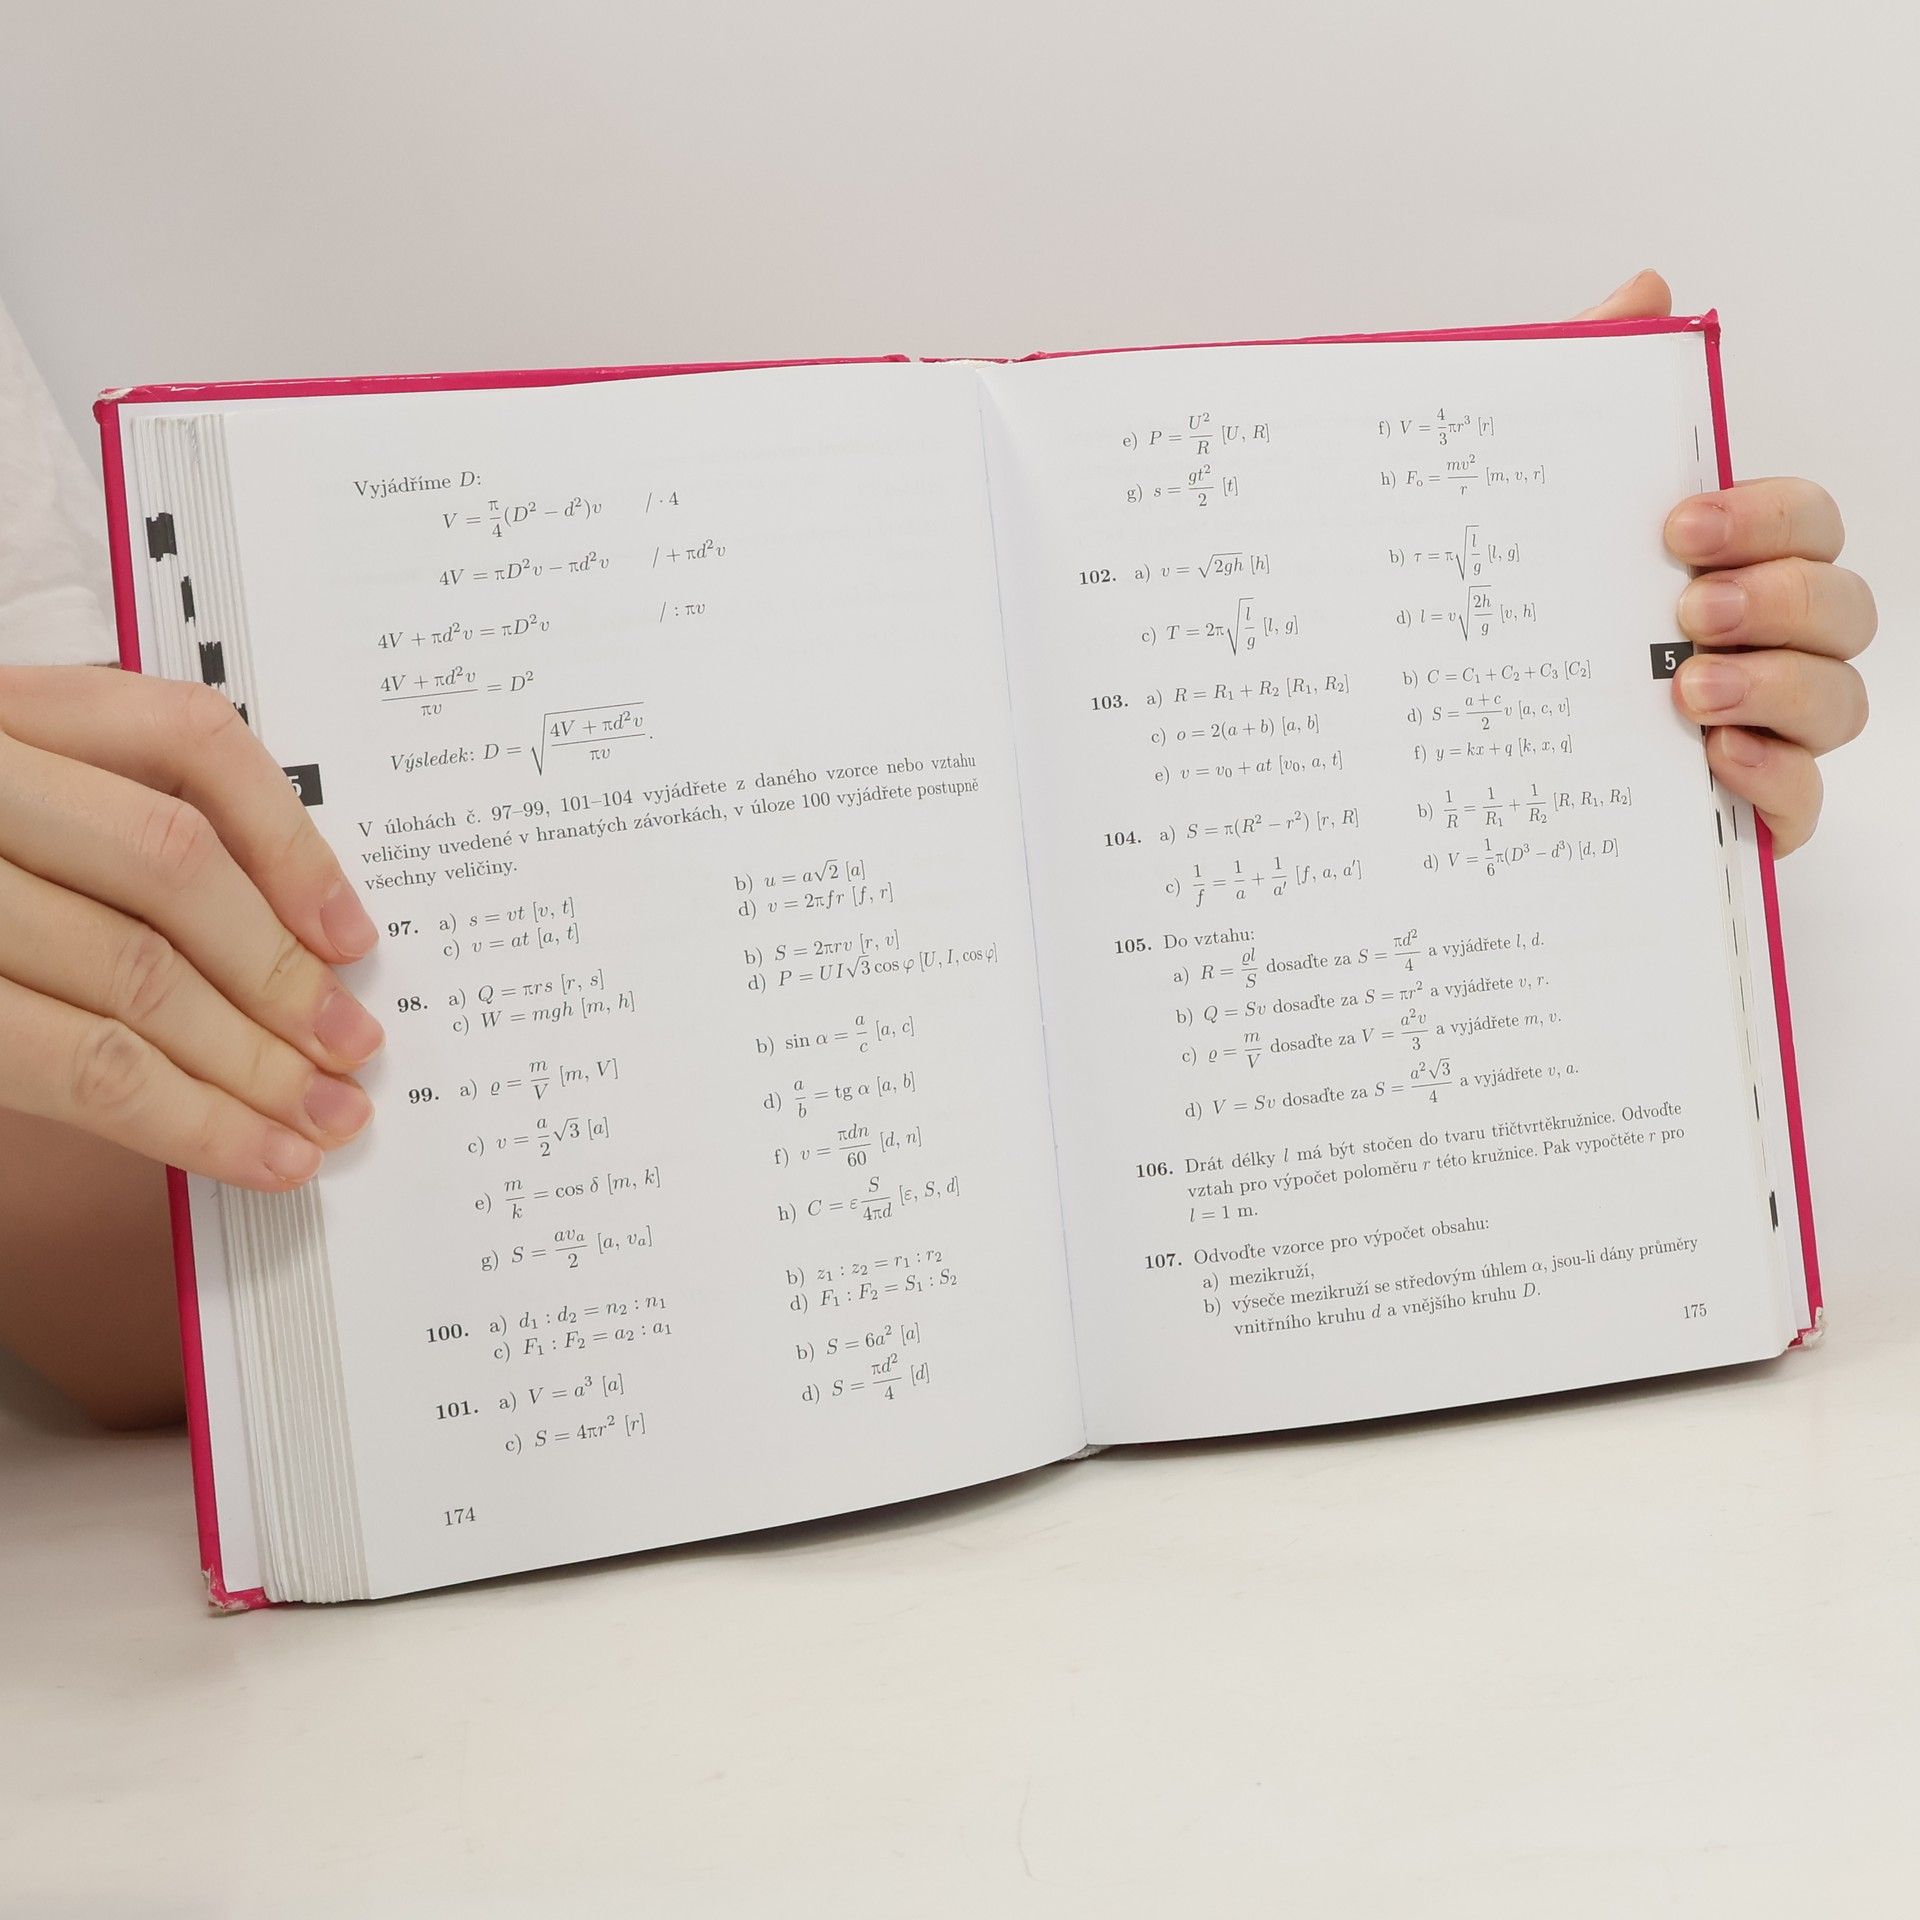 Vyjádříme D:
V = π/4 (D² − d²)v / · 4
4V = πD²v − πd²v / + πd²v
4V + πd²v = πD²v / : πv
(4V + πd²v)/(πv) = D²
Výsledek: D = √((4V + πd²v)/(πv)).
V úlohách č. 97–99, 101–104 vyjádřete z daného vzorce nebo vztahu
veličiny uvedené v hranatých závorkách, v úloze 100 vyjádřete postupně
všechny veličiny.
97. a) s = vt [v, t] b) u = a√2 [a]
c) v = at [a, t] d) v = 2πfr [f, r]
98. a) Q = πrs [r, s] b) S = 2πrv [r, v]
c) W = mgh [m, h] d) P = UI√3 cos φ [U, I, cos φ]
99. a) ϱ = m/V [m, V] b) sin α = a/c [a, c]
c) v = a/2 √3 [a] d) a/b = tg α [a, b]
e) m/k = cos δ [m, k] f) v = πdn/60 [d, n]
g) S = avₐ/2 [a, vₐ] h) C = ε S/4πd [ε, S, d]
100. a) d₁ : d₂ = n₂ : n₁ b) z₁ : z₂ = r₁ : r₂
c) F₁ : F₂ = a₂ : a₁ d) F₁ : F₂ = S₁ : S₂
101. a) V = a³ [a] b) S = 6a² [a]
c) S = 4πr² [r] d) S = πd²/4 [d]
174
5
e) P = U²/R [U, R] f) V = 4/3 πr³ [r]
g) s = gt²/2 [t] h) Fₒ = mv²/r [m, v, r]
102. a) v = √(2gh) [h] b) τ = π√(l/g) [l, g]
c) T = 2π√(l/g) [l, g] d) l = v√(2h/g) [v, h]
103. a) R = R₁ + R₂ [R₁, R₂] b) C = C₁ + C₂ + C₃ [C₂]
c) o = 2(a + b) [a, b] d) S = (a + c)/2 v [a, c, v]
e) v = v₀ + at [v₀, a, t] f) y = kx + q [k, x, q]
104. a) S = π(R² − r²) [r, R] b) 1/R = 1/R₁ + 1/R₂ [R, R₁, R₂]
c) 1/f = 1/a + 1/a′ [f, a, a′] d) V = 1/6 π(D³ − d³) [d, D]
105. Do vztahu:
a) R = ϱl/S dosaďte za S = πd²/4 a vyjádřete l, d.
b) Q = Sv dosaďte za S = πr² a vyjádřete v, r.
c) ϱ = m/V dosaďte za V = a²v/3 a vyjádřete m, v.
d) V = Sv dosaďte za S = a²√3/4 a vyjádřete v, a.
106. Drát délky l má být stočen do tvaru tříčtvrtěkružnice. Odvoďte
vztah pro výpočet poloměru r této kružnice. Pak vypočtěte r pro
l = 1 m.
107. Odvoďte vzorce pro výpočet obsahu:
a) mezikruží,
b) výseče mezikruží se středovým úhlem α, jsou-li dány průměry
vnitřního kruhu d a vnějšího kruhu D.
175
5